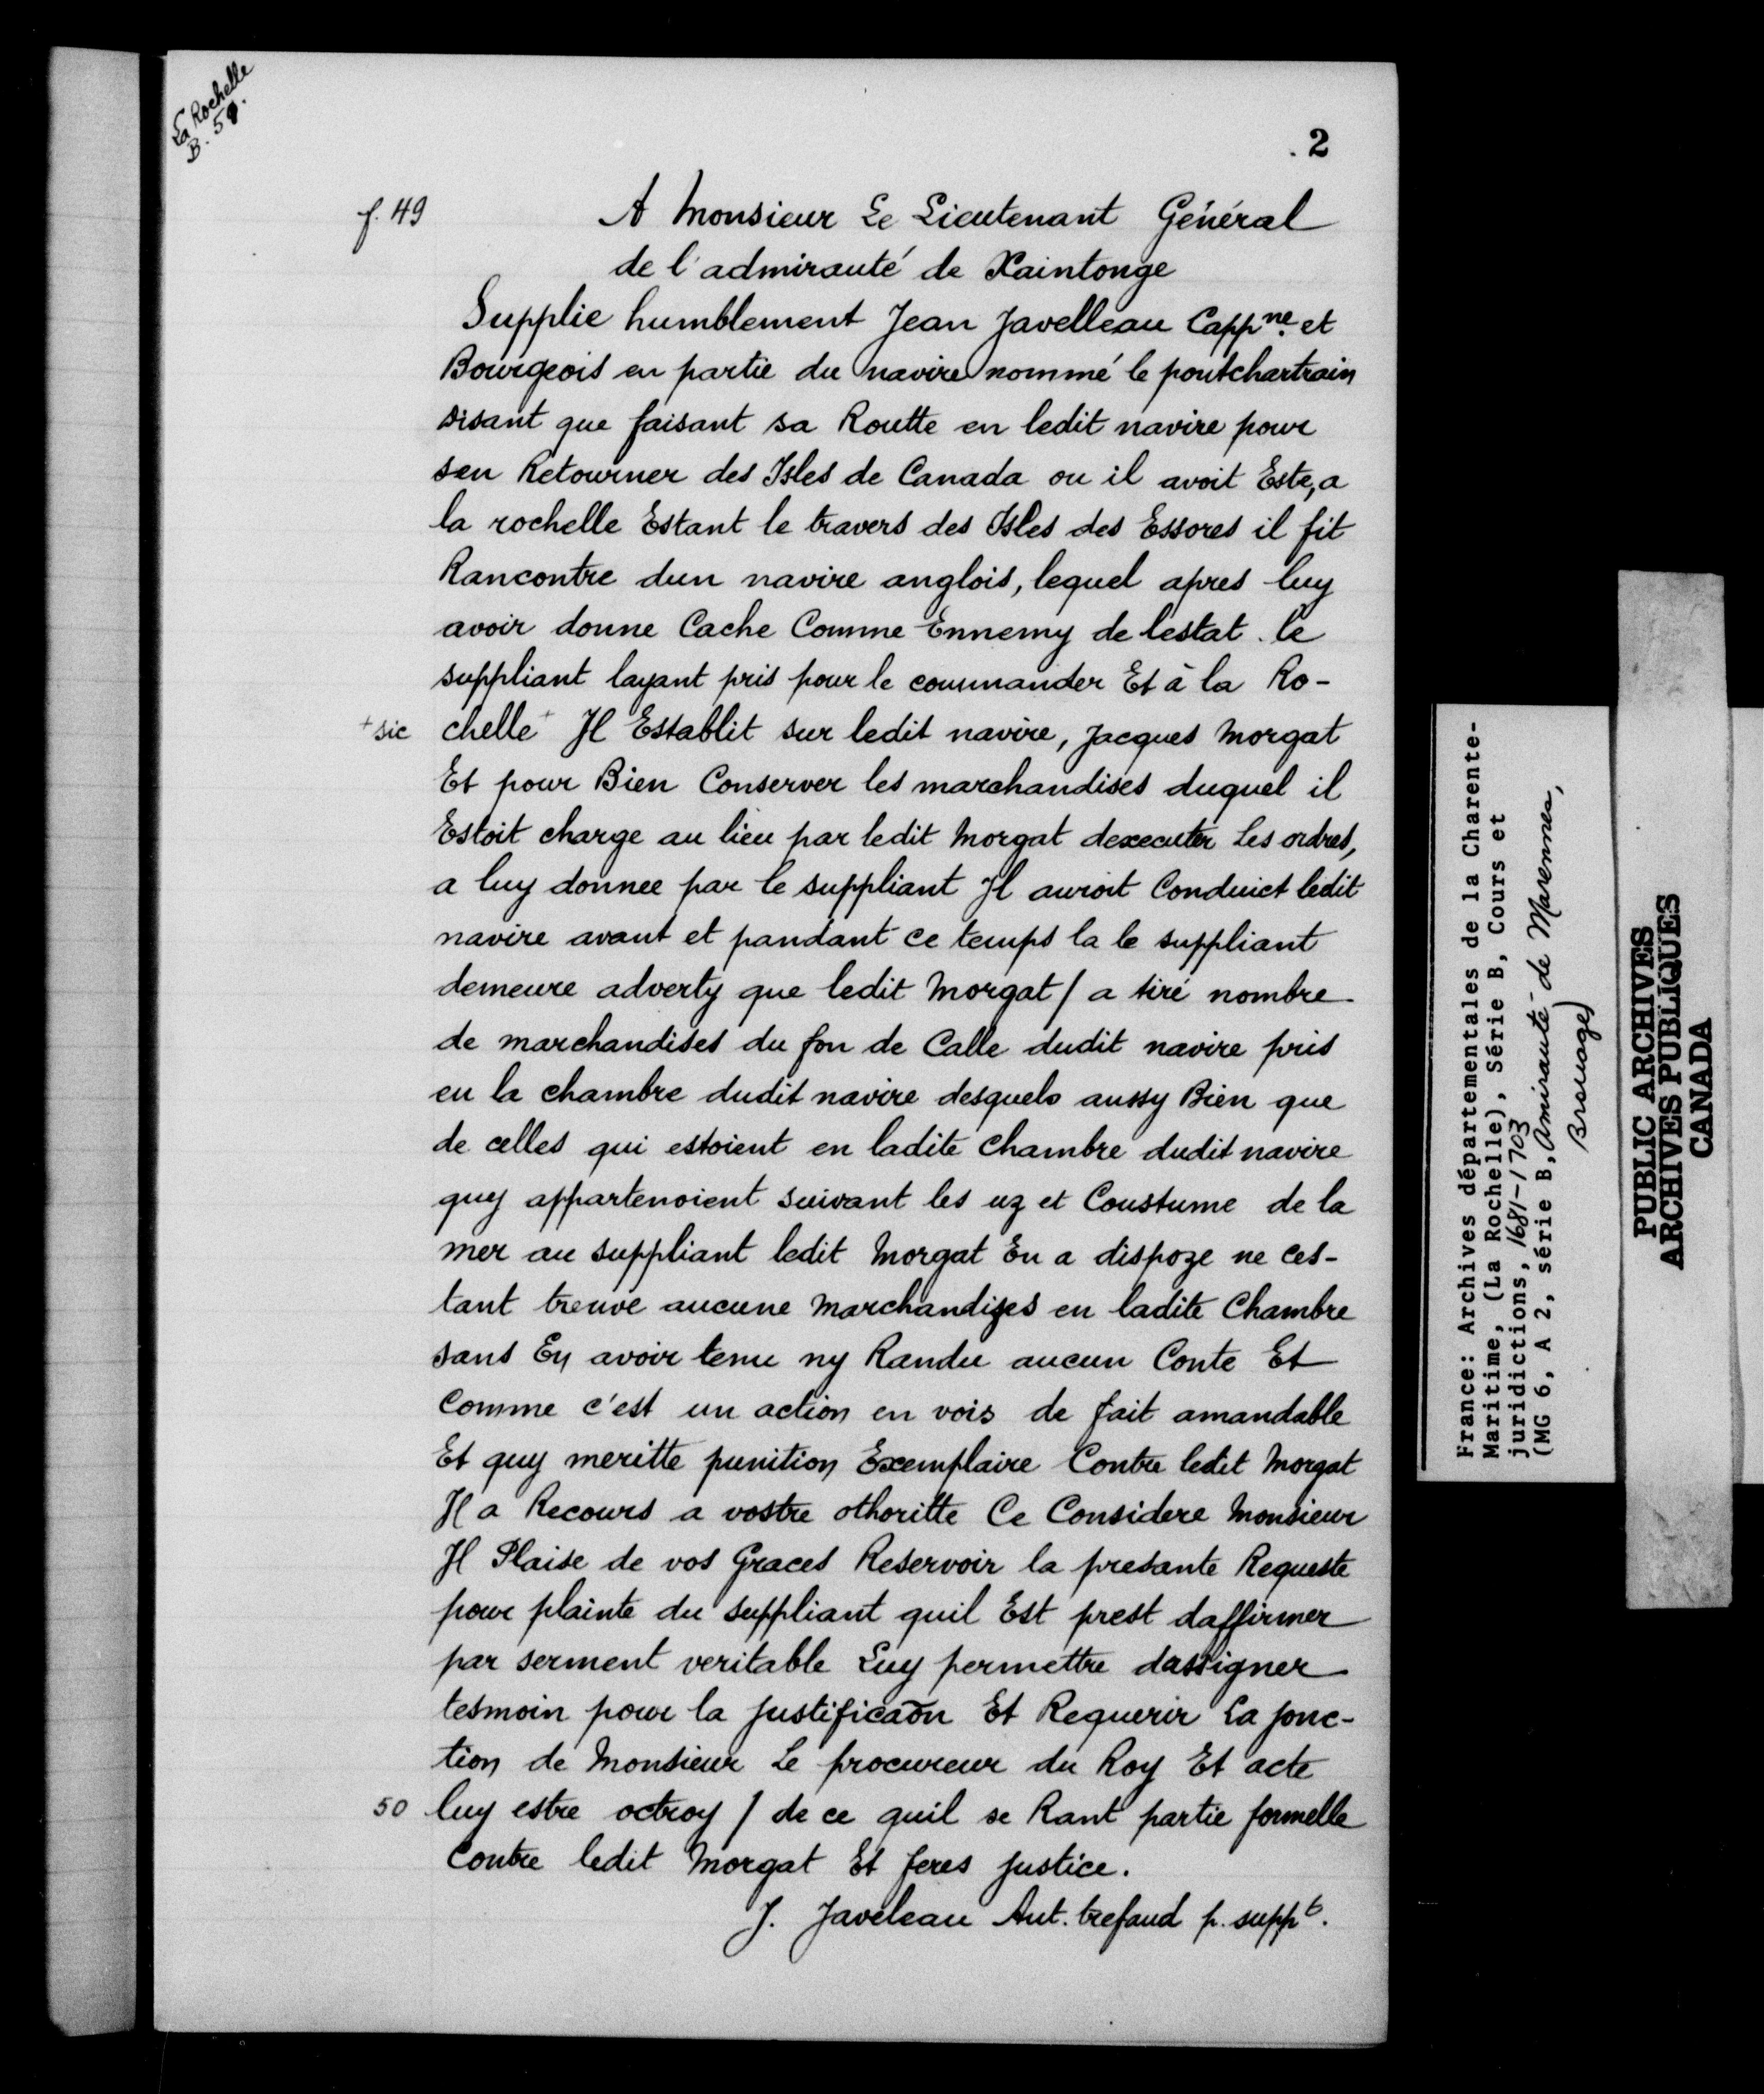 La Rochelle
B. 59.
. 2
f. 49
A Monsieur Le Lieutenant Général
de l'admirauté de Xaintonge
Supplie humblement Jean Javelleau Capp.ne et
Bourgeois en partie du navire nommé le pontchartrain
disant que faisant sa Routte en ledit navire pour
sen Retourner des Isles de Canada ou il avoit Este, a
la rochelle Estant le travers des Isles des Essores il fit
Rancontre dun navire anglois, lequel apres luy
avoir donne Cache Comme Ennemy de lestat. le
suppliant layant pris pour le commander Et à la Ro-
+ sic chelle + Il Establit sur ledit navire, Jacques Morgat
Et pour Bien Conserver les marchandises duquel il
Estoit charge au lieu par ledit Morgat dexecuter Les ordres,
a luy donnee par le suppliant Il auroit Conduict ledit
navire avant et pandant ce temps la le suppliant
demeure adverty que ledit Morgat / a tiré nombre
de marchandises du fon de Calle dudit navire pris
en la chambre dudit navire desquels aussy Bien que
de celles qui estoient en ladite chambre dudit navire
quy appartenoient suivant les uz et Coustume de la
mer au suppliant ledit Morgat En a dispoze ne ces-
tant treuve aucune Marchandizes en ladite Chambre
sans En avoir tenu ny Randu aucun Conte Et
Comme c'est un action en vois de fait amandable
Et quy meritte punition Exemplaire Contre ledit Morgat
Il a Recours a vostre othoritte Ce Considere Monsieur
Il Plaise de vos Graces Reservoir la presante Requeste
pour plainte du suppliant quil Est prest daffirmer
par serment veritable Luy permettre dassigner
tesmoin pour la justificaõn Et Requerir La jonc-
tion de Monsieur Le procureur du Roy Et acte
50 luy estre octroy / de ce quil se Rant partie formelle
Contre ledit Morgat Et feres justice.
J. Javeleau Ant. trefaud p. suppt.
France: Archives départementales de la Charente-
Maritime, (La Rochelle), Série B, Cours et
juridictions, 1681-1703
(MG 6, A 2, série B, Amirauté de Marennes,
Brouage)
PUBLIC ARCHIVES
ARCHIVES PUBLIQUES
CANADA